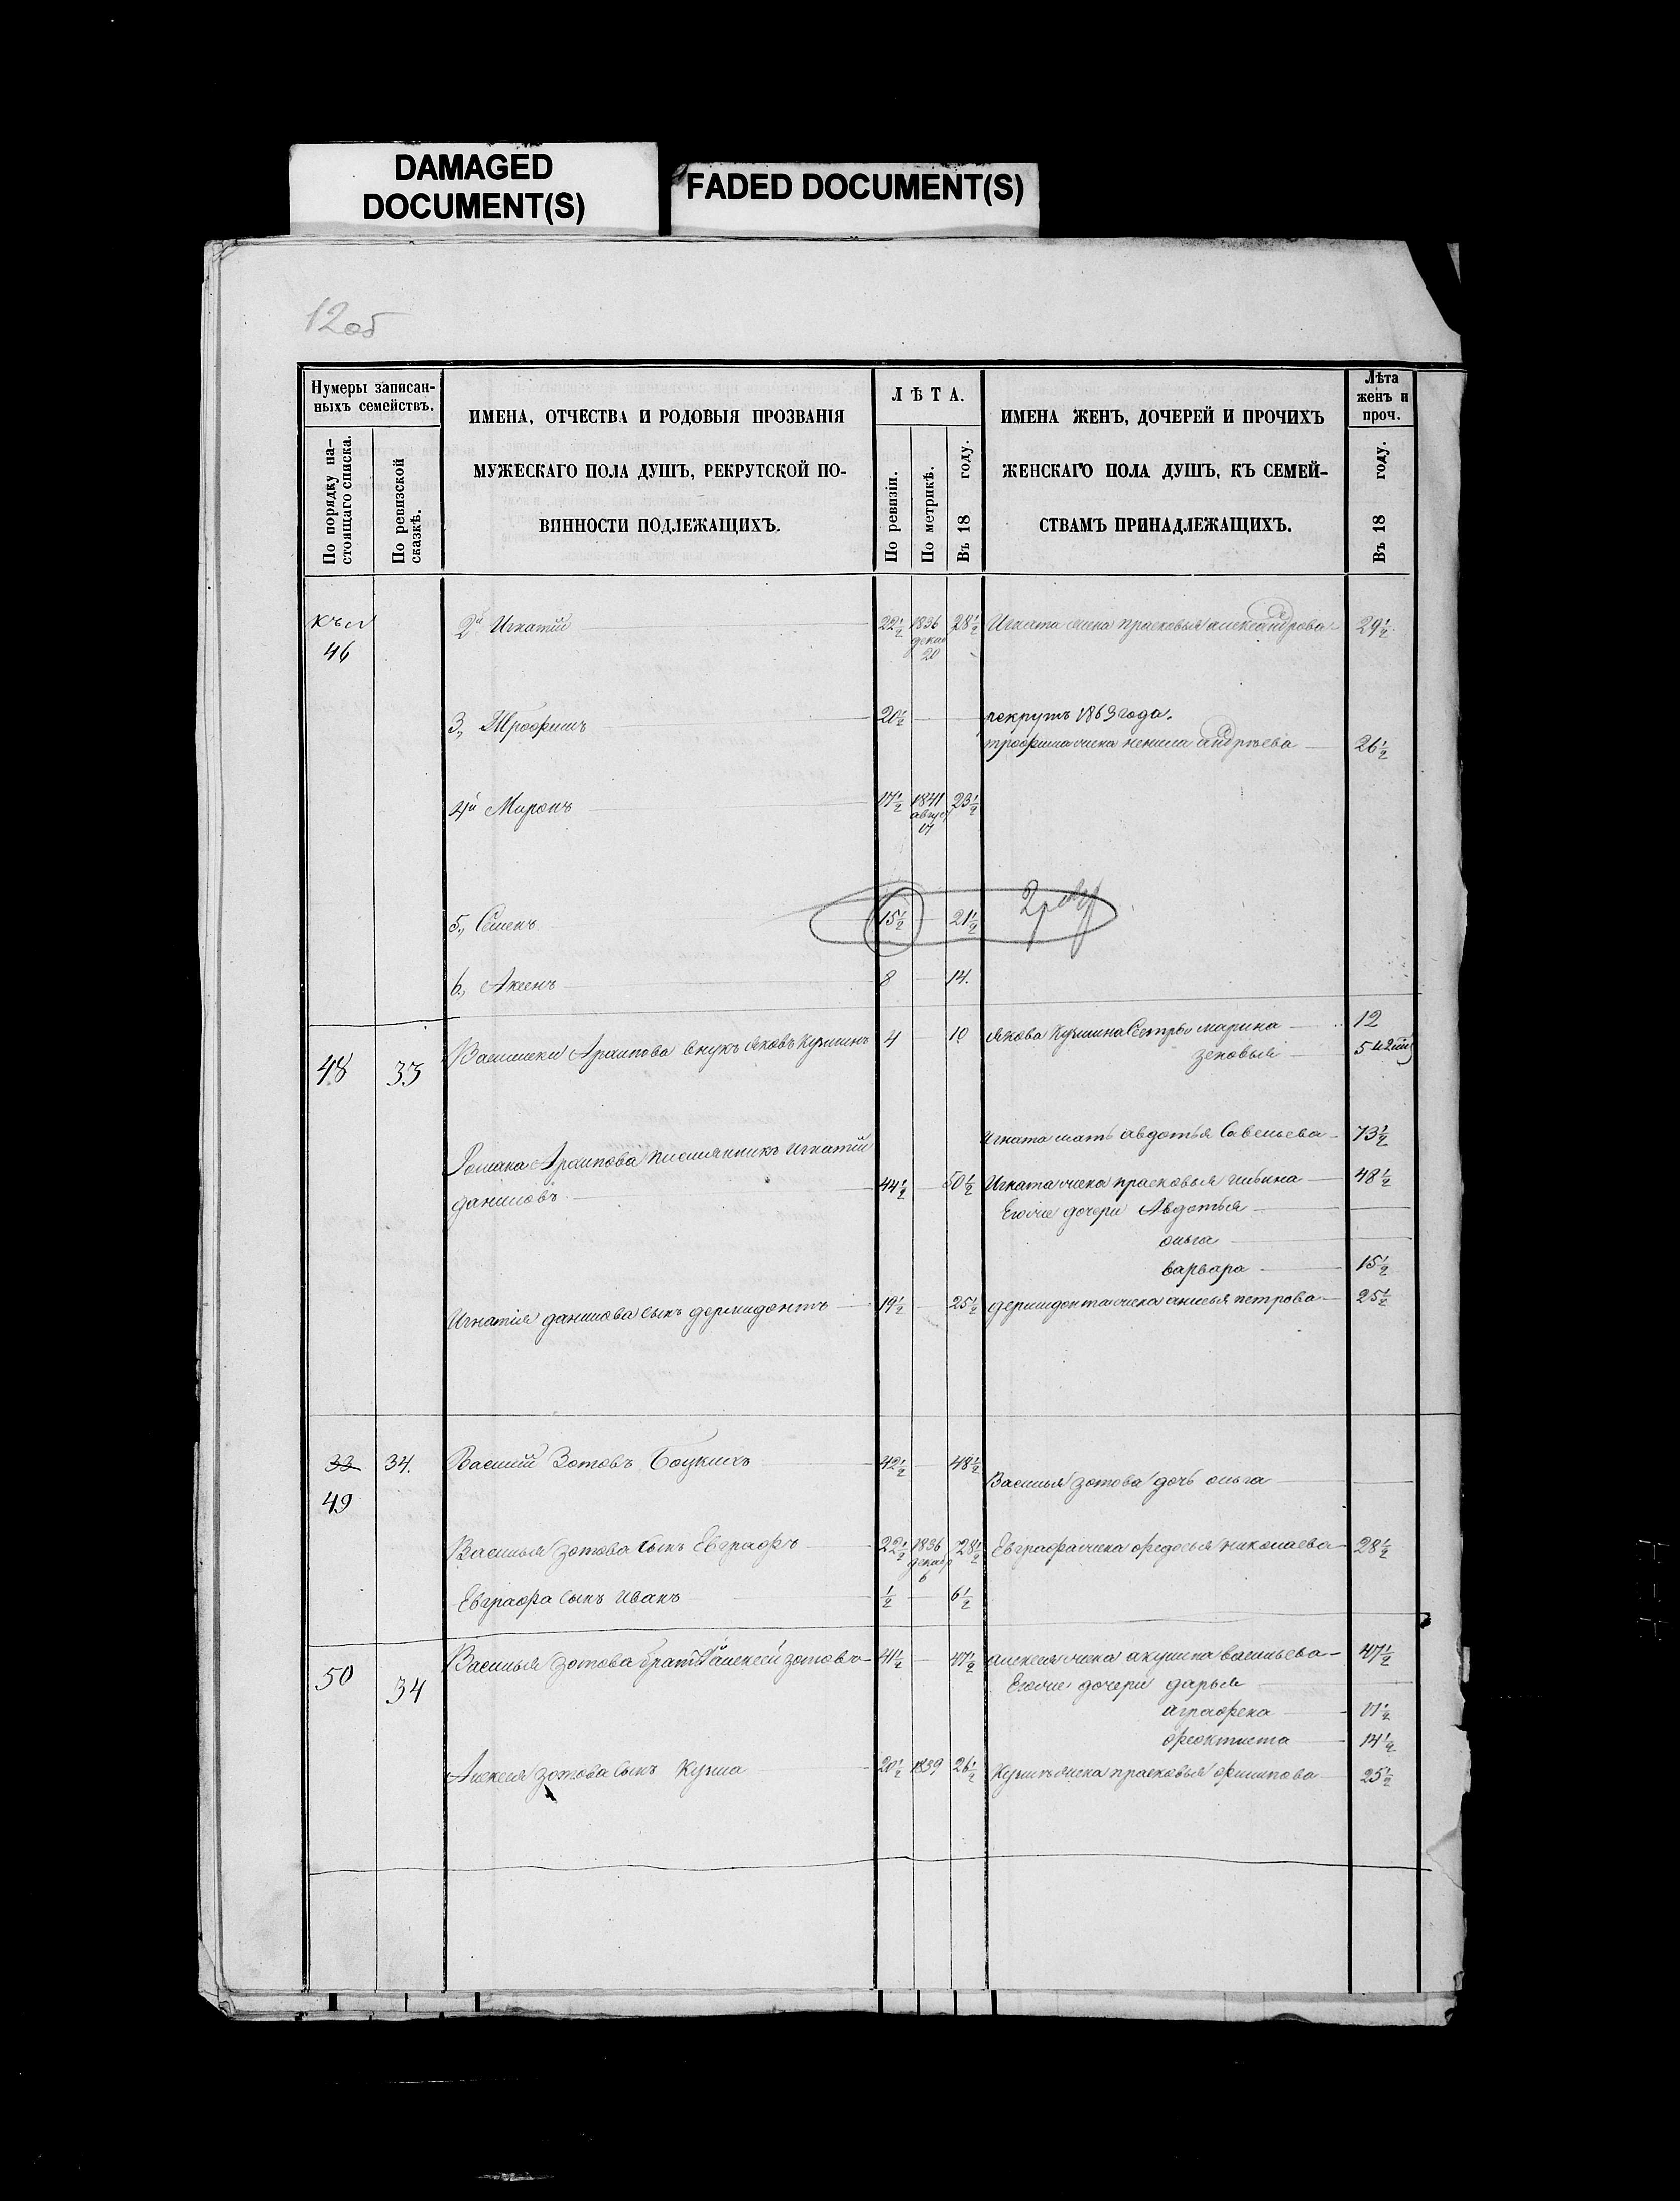 DAMAGED
DOCUMENT(S)
FADED DOCUMENT(S)
12об
Нумеры записан-
ныхъ семействъ.
По порядку на-
стоящаго списка.
По ревизской
сказкѣ.
ИМЕНА, ОТЧЕСТВА И РОДОВЫЯ ПРОЗВАНІЯ
МУЖЕСКАГО ПОЛА ДУШЪ, РЕКРУТСКОЙ ПО-
ВИННОСТИ ПОДЛЕЖАЩИХЪ.
ЛѢТА.
По ревизіи.
По метрикѣ.
Въ 18 году.
ИМЕНА ЖЕНЪ, ДОЧЕРЕЙ И ПРОЧИХЪ
ЖЕНСКАГО ПОЛА ДУШЪ, КЪ СЕМЕЙ-
СТВАМЪ ПРИНАДЛЕЖАЩИХЪ.
Лѣта
женъ и
проч.
Въ 18 году.
къ №
46
2й Игнатій 22½ 1836 декаб 20 28½ Игната жена прасковья александрова 29½
3, Трофимъ 20½ рекрутъ 1863 года.
трофима жена ненила андрѣева 26½
4й Миронъ 17½ 1841 август 17 23½
5, Семенъ 15½ 21½
6, Аксенъ 8 14.
48 33 Василия Архипова внукъ яковъ кузминъ 4 10 якова кузмина Сестры марина 12
зеновья 5
Игната мать авдотья Савельева 73½
Романа Архипова племянникъ игнатій
даниловъ 44½ 50½ Игната жена прасковья ильина 48½
Егоже дочери Авдотья
ольга
варвара 15½
Игнатія данилова сынъ дермидонтъ 19½ 25½ дермидонта жена анисья петрова 25½
33 34. Василій Зотовъ Боцкихъ 42½ 48½
49 Василья зотова дочь ольга
Василья зотова сынъ Евграфъ 22½ 1836 декабр 6 28½ Евграфа жена федосья николаева 28½
Евграфа сынъ иванъ ½ 6½
50 34 Василья зотова братъ алексей зотовъ 41½ 47½ алексея жена акулина васильева 47½
Егоже дочери дарья
аграфена 17½
феоктиста 14½
Алексея зотова сынъ Кузма 20½ 1839 26½ Кузмы жена прасковья филипова 25½